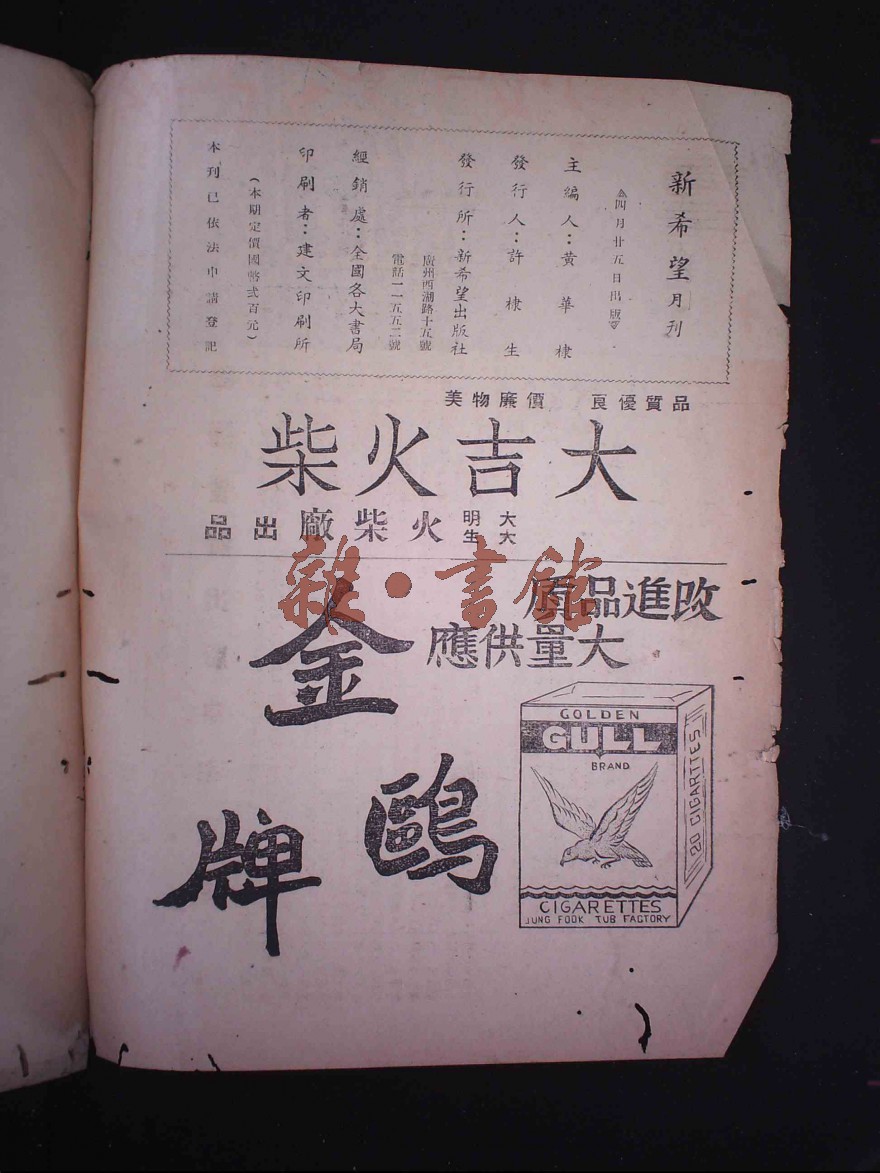 新希望月刊
四月廿五日出版
主編人：黃華棣
發行人：許棣生
發行所：新希望出版社
廣州西湖路十五號
電話一一五五二號
經銷處：全國各大書局
印刷者：建文印刷所
（本期定價國幣弍百元）
本刊已依法申請登記
品質優良 價廉物美
大吉火柴
大明
大生
火柴廠出品
改進品質
大量供應
金鷗牌
雜·書館
GOLDEN
GULL
BRAND
20 CIGARTTES
CIGARETTES
JUNG FOOK TUB FACTORY